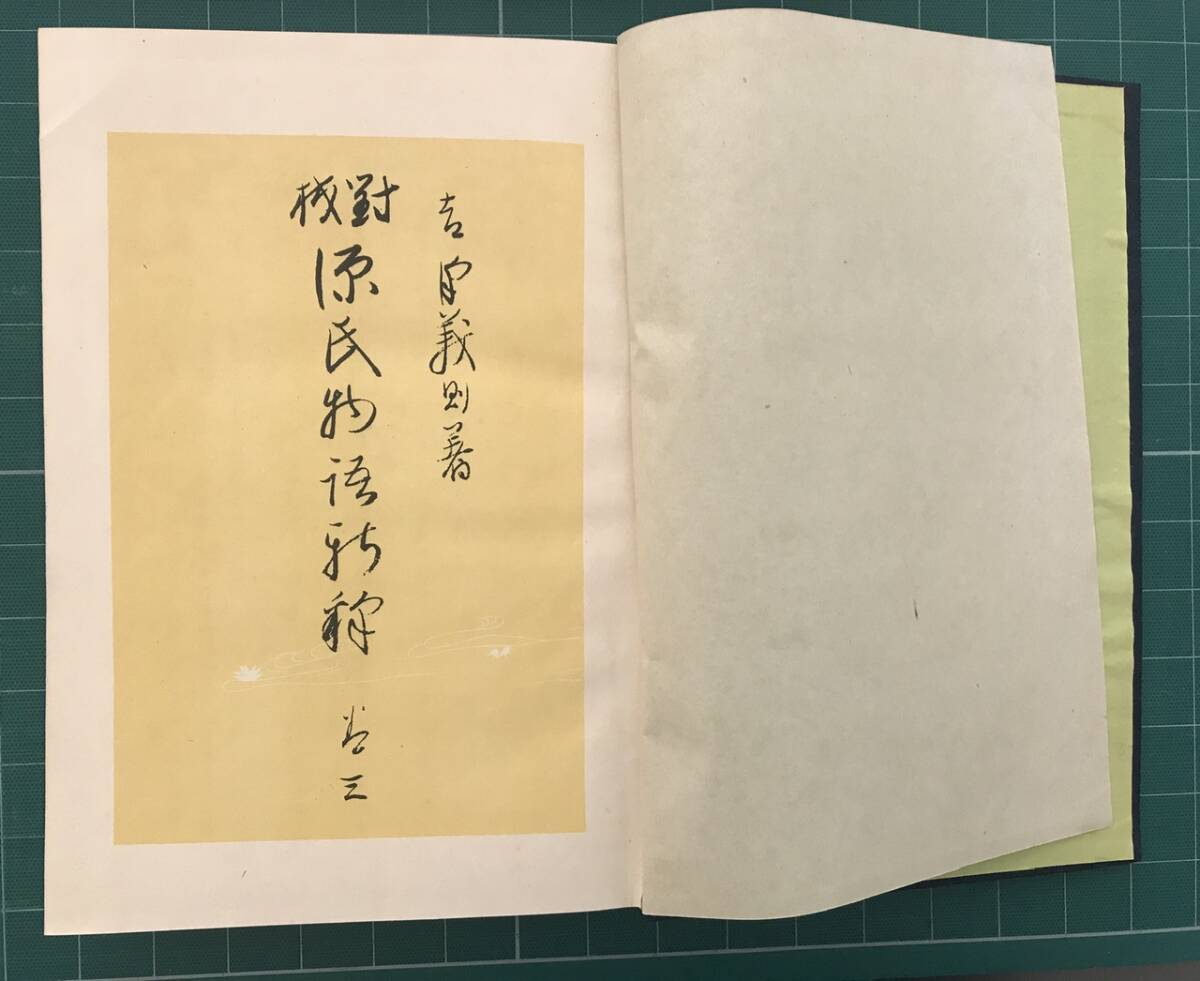 吉澤義則著
對校
源氏物語新釋
卷三